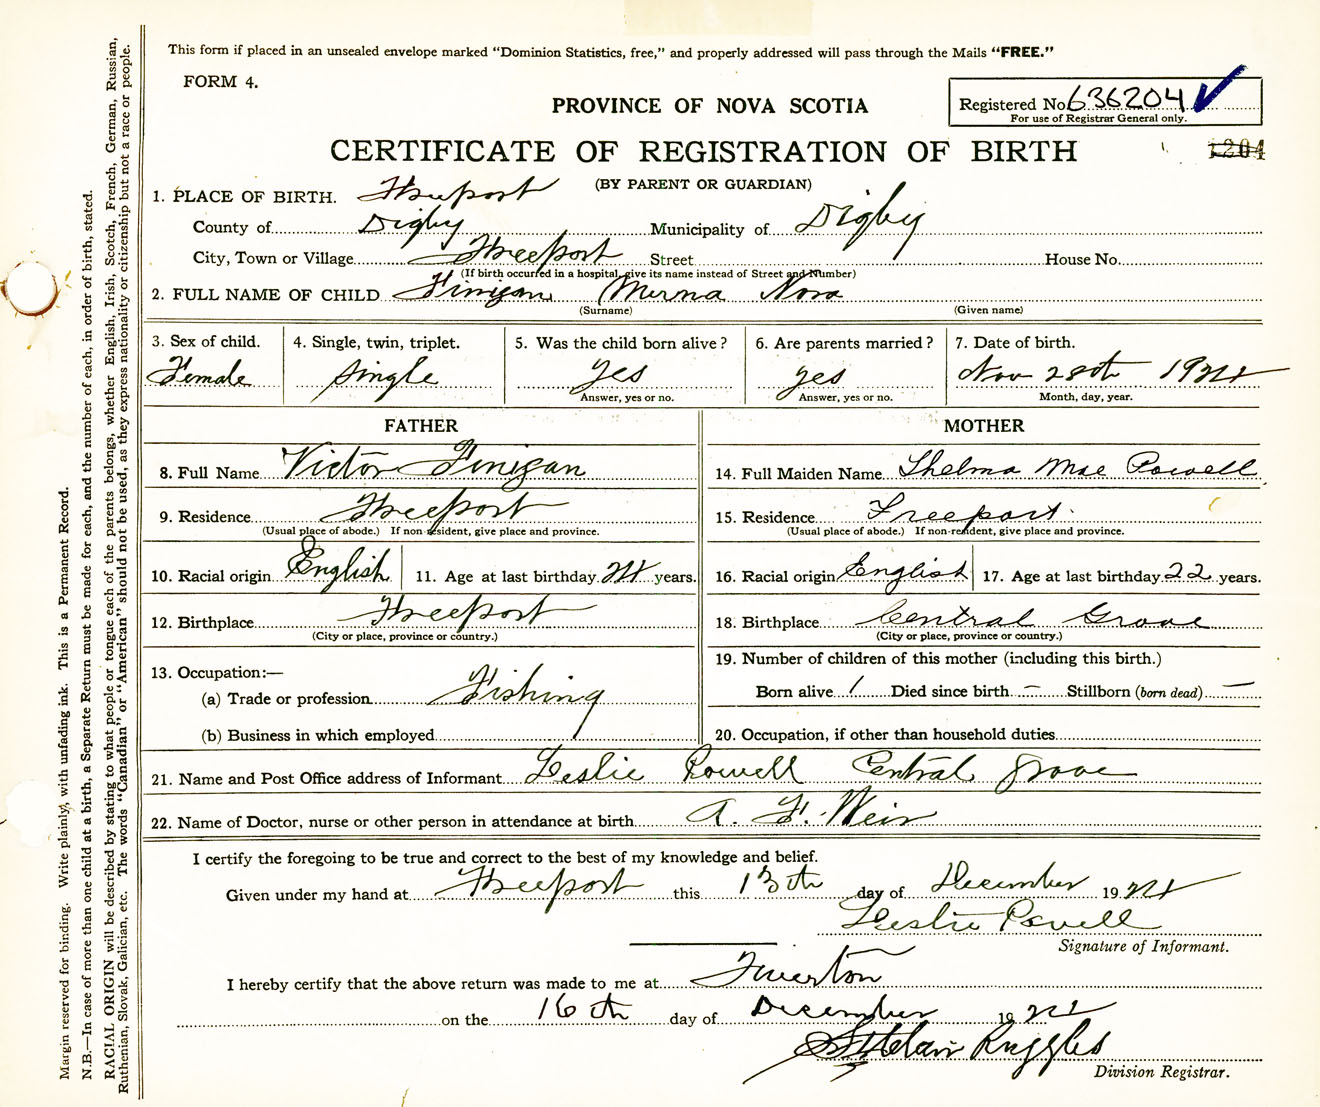 This form if placed in an unsealed envelope marked "Dominion Statistics, free," and properly addressed will pass through the Mails "FREE."
FORM 4.
PROVINCE OF NOVA SCOTIA
Registered No. 636204 ✓
For use of Registrar General only.
CERTIFICATE OF REGISTRATION OF BIRTH
1204
(BY PARENT OR GUARDIAN)
1. PLACE OF BIRTH. Freeport
County of Digby Municipality of Digby
City, Town or Village Freeport Street House No.
(If birth occurred in a hospital, give its name instead of Street and Number)
2. FULL NAME OF CHILD Finigan Merna Nova
(Surname) (Given name)
3. Sex of child. 4. Single, twin, triplet. 5. Was the child born alive? 6. Are parents married? 7. Date of birth.
Female single yes yes Nov 28th 19
Answer, yes or no. Answer, yes or no. Month, day, year.
FATHER
8. Full Name Victor Finigan
9. Residence Freeport
(Usual place of abode.) If non-resident, give place and province.
10. Racial origin English 11. Age at last birthday years.
12. Birthplace Freeport
(City or place, province or country.)
13. Occupation:—
(a) Trade or profession Fishing
(b) Business in which employed
MOTHER
14. Full Maiden Name Thelma Mae Powell
15. Residence Freeport.
(Usual place of abode.) If non-resident, give place and province.
16. Racial origin English 17. Age at last birthday 22 years.
18. Birthplace Central Grove
(City or place, province or country.)
19. Number of children of this mother (including this birth.)
Born alive 1 Died since birth – Stillborn (born dead) –
20. Occupation, if other than household duties
21. Name and Post Office address of Informant Leslie Powell Central Grove
22. Name of Doctor, nurse or other person in attendance at birth A. F. Weir
I certify the foregoing to be true and correct to the best of my knowledge and belief.
Given under my hand at Freeport this 13th day of December 19
Leslie Powell
Signature of Informant.
I hereby certify that the above return was made to me at Tiverton
on the 16th day of December 19
Ruggles
Division Registrar.
Margin reserved for binding. Write plainly, with unfading ink. This is a Permanent Record.
N.B.—In case of more than one child at a birth, a Separate Return must be made for each, and the number of each, in order of birth, stated.
RACIAL ORIGIN will be described by stating to what people or tongue each of the parents belongs, whether English, Irish, Scotch, French, German, Russian,
Ruthenian, Slovak, Galician, etc. The words "Canadian" or "American" should not be used, as they express nationality or citizenship but not a race or people.